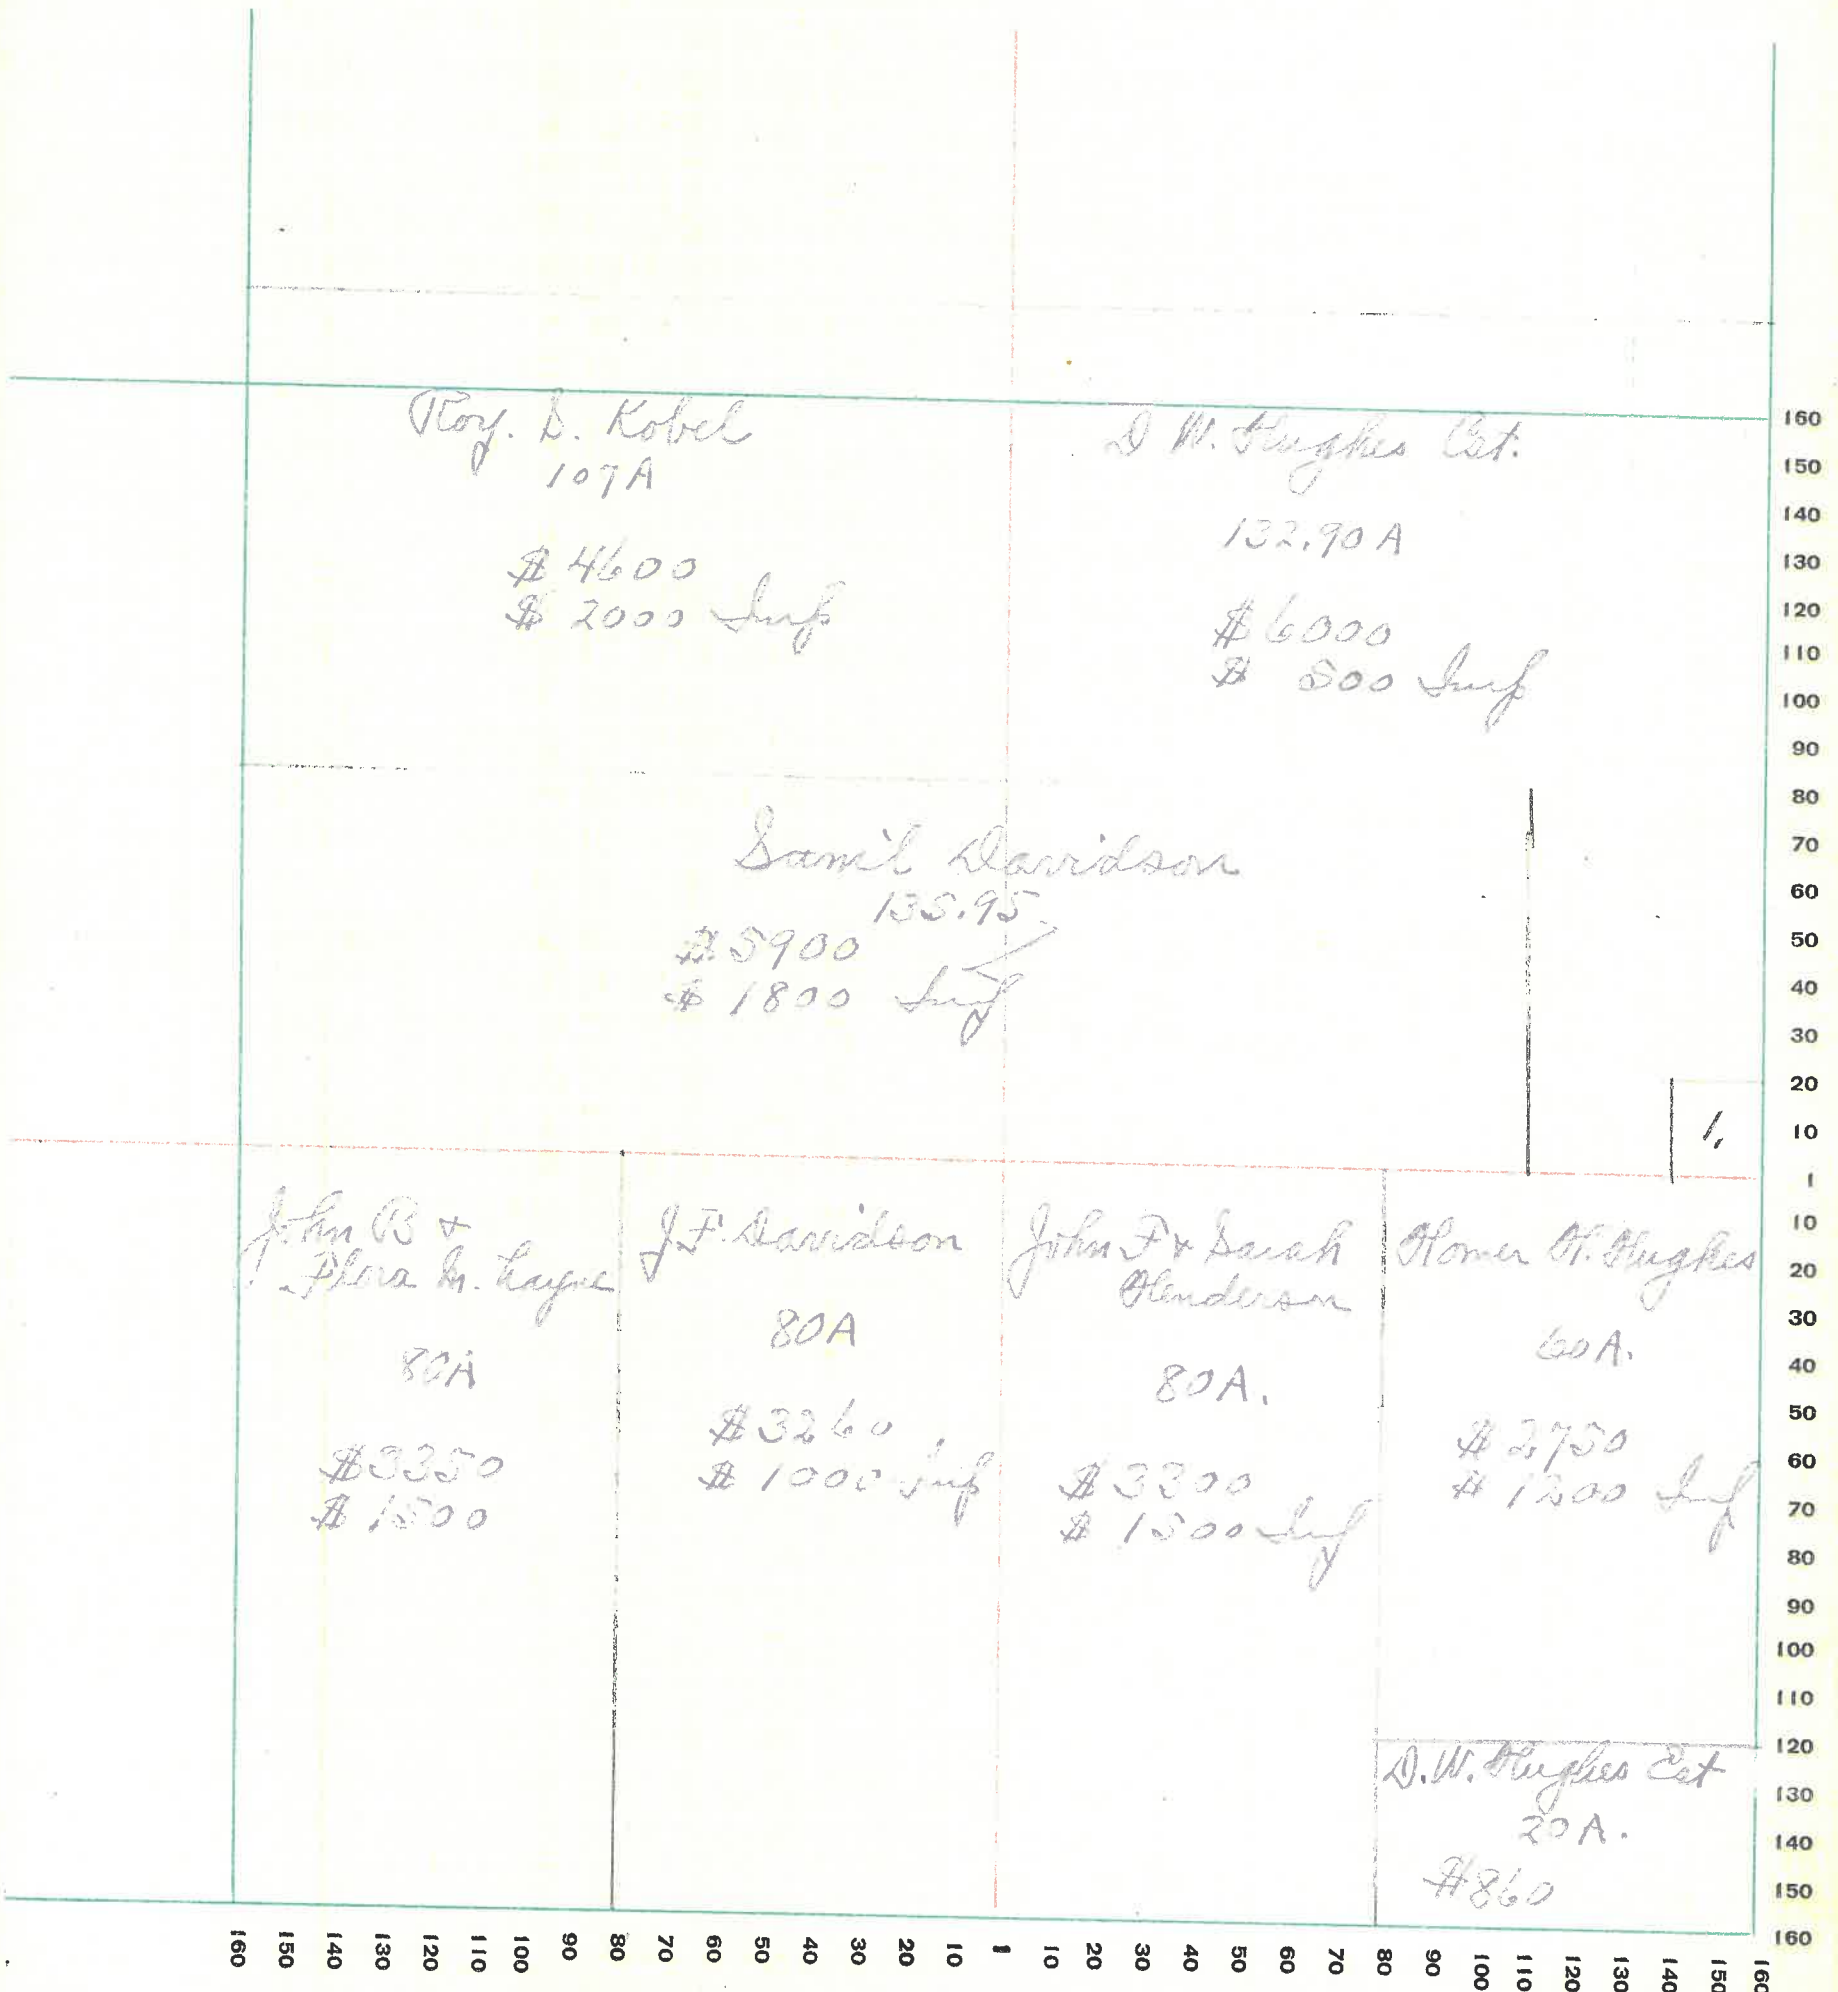 Roy. D. Kobel
107A
$ 4600
$ 2000 Imp
D W. Hughes Est.
132.90 A
$ 6000
$ 500 Imp
Sam'l Davidson
135.95
$ 5900
$ 1800 Imp
1.
John B &
Flora M. Layne
80A
$3350
$ 1500
J.F. Davidson
80A
$3260
$ 1000 Imp
John F & Sarah
Henderson
80A.
$ 3300
$ 1500 Imp
Homer H. Hughes
60A.
$ 2750
$ 1200 Imp
D.W. Hughes Est
20A.
$860
160
150
140
130
120
110
100
90
80
70
60
50
40
30
20
10
1
10
20
30
40
50
60
70
80
90
100
110
120
130
140
150
160
160 150 140 130 120 110 100 90 80 70 60 50 40 30 20 10 1 10 20 30 40 50 60 70 80 90 100 110 120 130 140 150 160